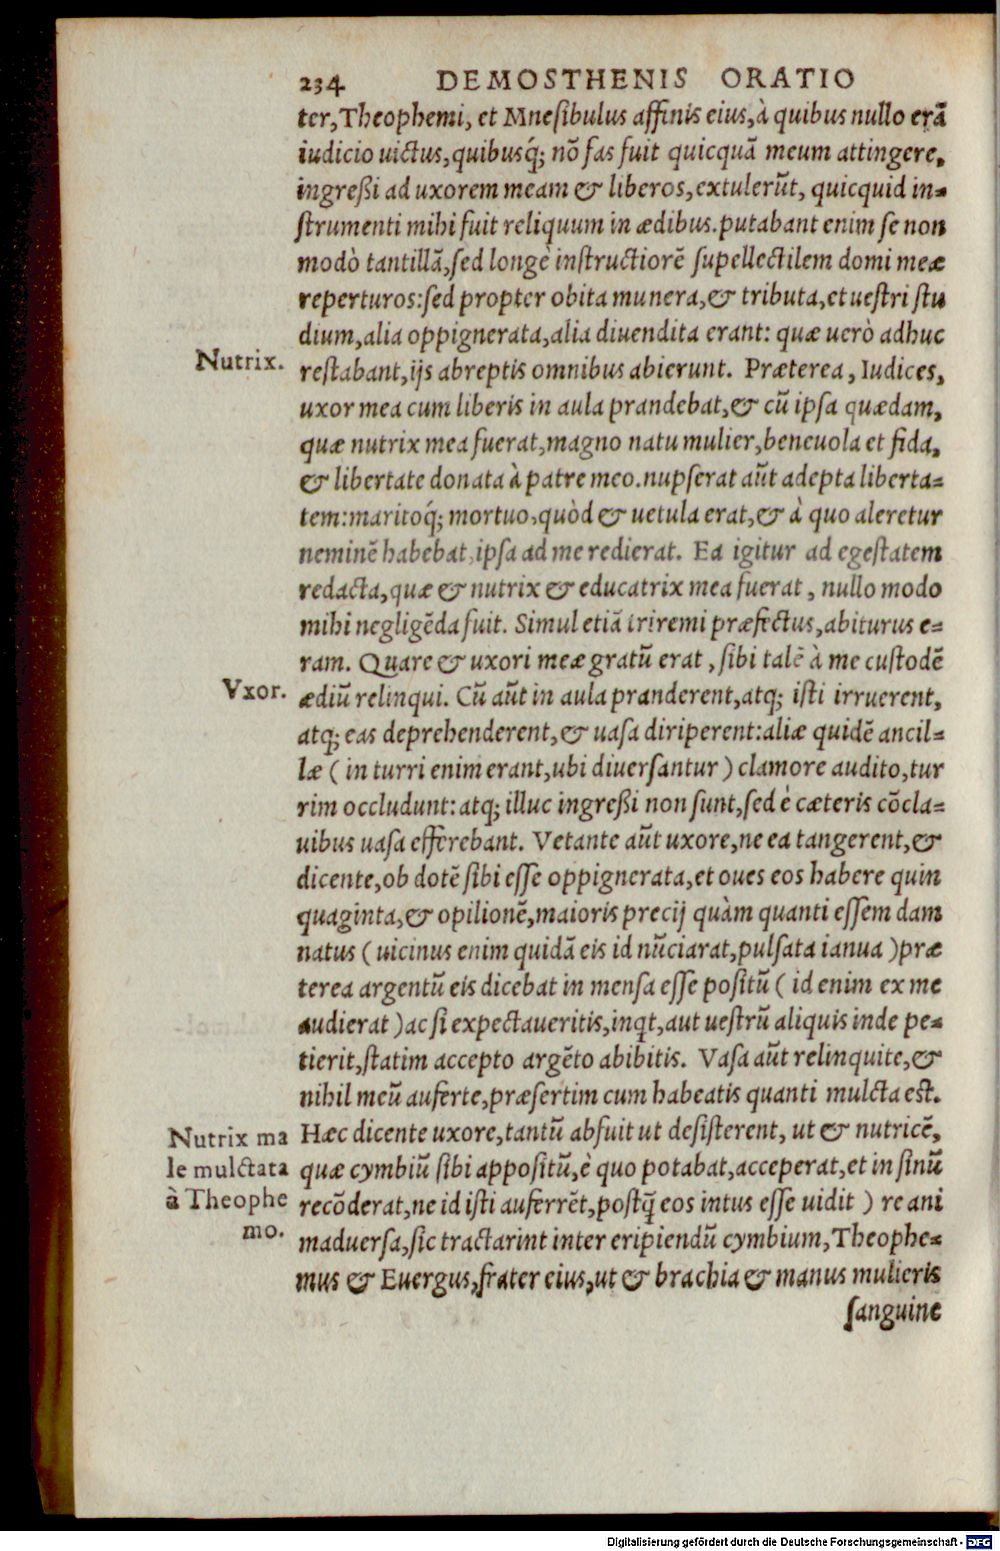 234 DEMOSTHENIS ORATIO
ter, Theophemi, et Mnesibulus affinis eius, à quibus nullo erā
iudicio uictus, quibusq́; nō fas fuit quicquā meum attingere,
ingreßi ad uxorem meam & liberos, extulerūt, quicquid in-
strumenti mihi fuit reliquum in ædibus. putabant enim se non
modò tantillā, sed longè instructiorē supellectilem domi meæ
reperturos: sed propter obita munera, & tributa, et uestri stu
dium, alia oppignerata, alia diuendita erant: quæ uerò adhuc
Nutrix.
restabant, ijs abreptis omnibus abierunt. Præterea, Iudices,
uxor mea cum liberis in aula prandebat, & cū ipsa quædam,
quæ nutrix mea fuerat, magno natu mulier, beneuola et fida,
& libertate donata à patre meo. nupserat aūt adepta liberta-
tem: maritoq́; mortuo, quòd & uetula erat, & à quo aleretur
neminē habebat, ipsa ad me redierat. Ea igitur ad egestatem
redacta, quæ & nutrix & educatrix mea fuerat, nullo modo
mihi negligēda fuit. Simul etiā triremi præfectus, abiturus e-
ram. Quare & uxori meæ gratū erat, sibi talē à me custodē
Vxor.
ædiū relinqui. Cū aūt in aula pranderent, atq; isti irruerent,
atq; eas deprehenderent, & uasa diriperent: aliæ quidē ancil-
læ (in turri enim erant, ubi diuersantur) clamore audito, tur
rim occludunt: atq; illuc ingreßi non sunt, sed è cæteris cōcla-
uibus uasa efferebant. Vetante aūt uxore, ne ea tangerent, &
dicente, ob dotē sibi esse oppignerata, et oues eos habere quin
quaginta, & opilionē, maioris precij quàm quanti essem dam
natus (uicinus enim quidā eis id nūciarat, pulsata ianua) præ
terea argentū eis dicebat in mensa esse positū (id enim ex me
audierat) ac si expectaueritis, inqt, aut uestrū aliquis inde pe-
tierit, statim accepto argēto abibitis. Vasa aūt relinquite, &
nihil meū auferte, præsertim cum habeatis quanti mulcta est.
Nutrix ma
le mulctata
à Theophe
mo.
Hæc dicente uxore, tantū absuit ut desisterent, ut & nutricē,
quæ cymbiū sibi appositū, è quo potabat, acceperat, et in sinū
recōderat, ne id isti auferrēt, postq̄ eos intus esse uidit) re ani
maduersa, sic tractarint inter eripiendū cymbium, Theophe-
mus & Euergus, frater eius, ut & brachia & manus mulieris
sanguine
Digitalisierung gefördert durch die Deutsche Forschungsgemeinschaft - DFG